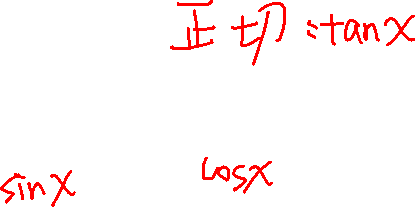 正切:tanx
sinx cosx